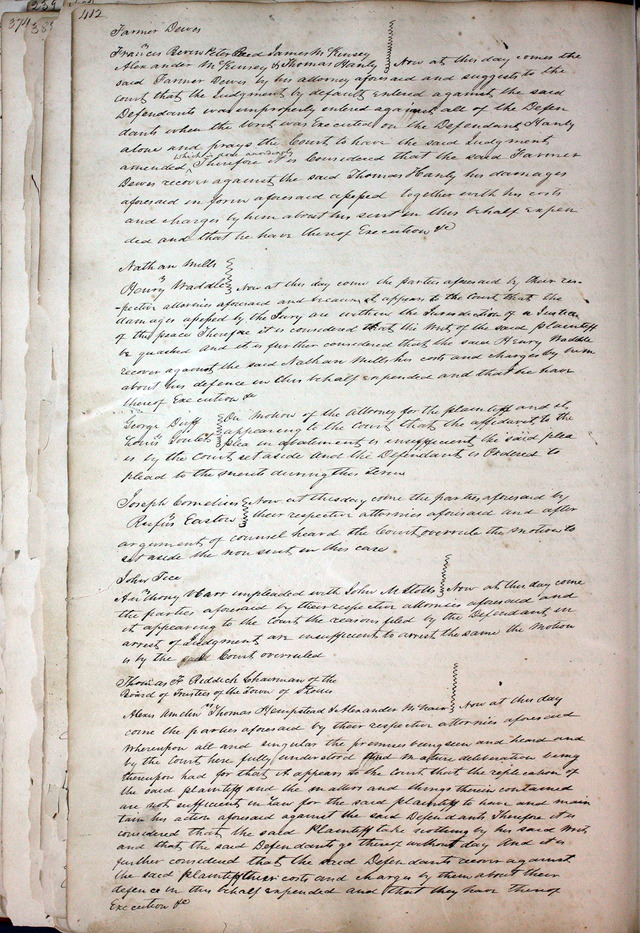 412
Farmer Dewes
Frances Rever Peter Reed James McKinsey
Alexander McKinsey & Thomas Hanly Now at this day comes the
said Farmer Dewes by his attorney aforesaid and suggests to the
Court that the Judgment by default entered against the said
Defendants was improperly entered against all of the Defen
dants when the Writ was Executed on the Defendant Hanly
alone and prays the Court to have the said Judgment
amended which is done accordingly Therefore it is Considered that the said Farmer
Dewes recover against the said Thomas Hanly his damages
aforesaid in form aforesaid assessed together with his costs
and charges by him about his suit in this behalf expen
ded and that he have thereof Execution &c
Nathan Mills
vs
Henry Waddle Now at this day come the parties aforesaid by their res-
-pective attornies aforesaid and because it appears to the Court that the
damages assessed by the Jury are within the Jurisdiction of a Justice
of the peace Therefore it is considered that the Writ of the said plaintiff
be quashed and it is further considered that the said Henry Waddle
recover against the said Nathan Mills his costs and charges by him
about his defence in this behalf expended and that he have
thereof Execution &c
George Duff On motion of the Attorney for the plaintiff and it
vs
Louis appearing to the Court that the affidavit to the
plea in abatement is insufficient the said plea
is by the Court set aside and the Defendant is Ordered to
plead to the merits during this Term
Joseph Cornelius Now at this day come the parties aforesaid by
vs
Rufus Easton their respective attornies aforesaid and after
arguments of counsel heard the Court overrule the motion to
set aside the non suit in this case
John Tice
vs
Anthony Harr impleaded with John M Stotts Now at this day come
the parties aforesaid by their respective attornies aforesaid and
it appearing to the Court the reasons filed by the Defendant in
arrest of Judgment are insufficient to arrest the same the Motion
is by the said Court overruled
Thomas F Riddick Chairman of the
Board of Trustees of the Town of St Louis
vs
Alexis Amelin Thomas Hempstead & Alexander McNair Now at this day
come the parties aforesaid by their respective attornies aforesaid
Whereupon all and singular the premises being seen and heard and
by the Court here fully understood and mature deliberation being
thereupon had for that it appears to the Court that the replication of
the said plaintiff and the matters and things therein contained
are not sufficient in Law for the said plaintiff to have and main
tain his action aforesaid against the said Defendants Therefore it is
considered that the said Plaintiff take nothing by his said Writ
and that the said Defendants go thereof without day And it is
further considered that the said Defendants recover against
the said plaintiff their costs and charges by them about their
defence in this behalf expended and that they have thereof
Execution &c